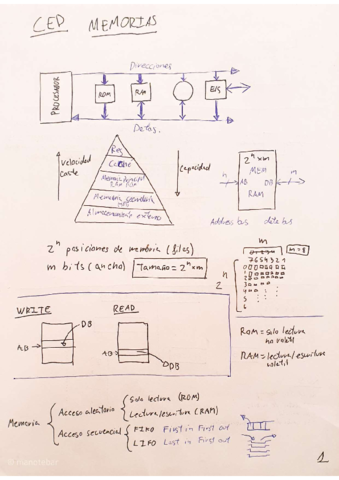 CED MEMORIAS
Direcciones
PROCESADOR
ROM
RAM
E/S
Datos.
Velocidad
Coste
Reg
Caché
Memoria secundaria
Almacenamiento externo
Capacidad
2^n x m
MEM
RAM
n
AB
DB
m
Address bus
data bus
2^n posiciones de memoria (filas)
m bits (ancho)
Tamaño = 2^n x m
m
m=8
7 6 5 4 3 2 1
2^n
WRITE
READ
AB
DB
AB
DB
ROM = solo lectura
no volatil
RAM = lectura/escritura
volatil
Memoria
Acceso aleatorio
Solo lectura (ROM)
Lectura/escritura (RAM)
Acceso secuencial
FIFO First in First out
LIFO Last in First out
1